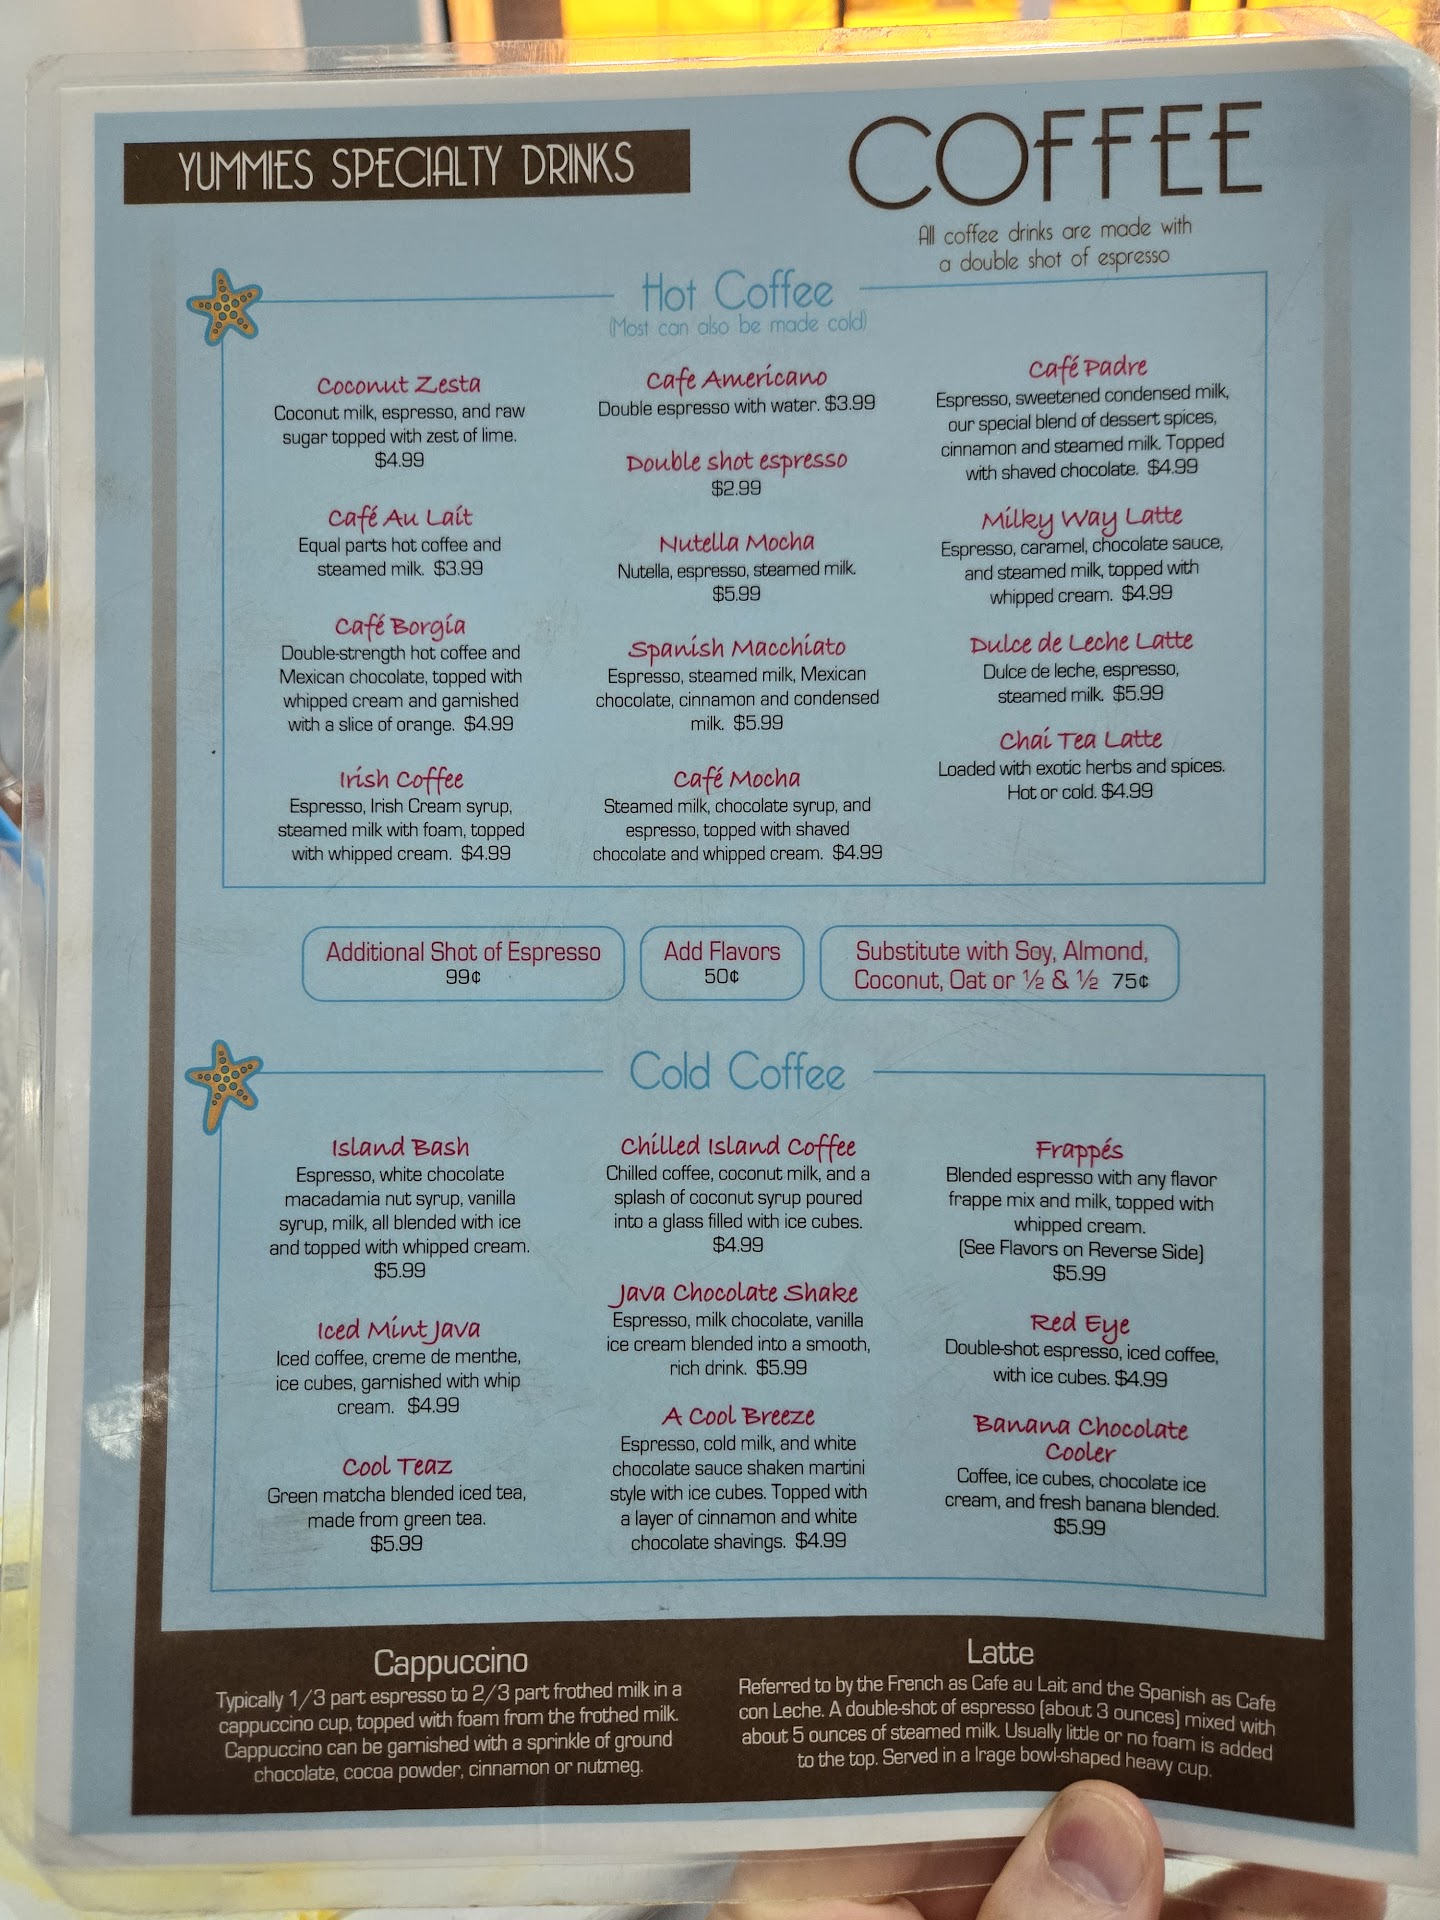 YUMMIES SPECIALTY DRINKS
COFFEE
All coffee drinks are made with
a double shot of espresso
Hot Coffee
(Most can also be made cold)
Coconut Zesta
Coconut milk, espresso, and raw
sugar topped with zest of lime.
$4.99
Café Au Lait
Equal parts hot coffee and
steamed milk. $3.99
Café Borgia
Double-strength hot coffee and
Mexican chocolate, topped with
whipped cream and garnished
with a slice of orange. $4.99
Irish Coffee
Espresso, Irish Cream syrup,
steamed milk with foam, topped
with whipped cream. $4.99
Cafe Americano
Double espresso with water. $3.99
Double shot espresso
$2.99
Nutella Mocha
Nutella, espresso, steamed milk.
$5.99
Spanish Macchiato
Espresso, steamed milk, Mexican
chocolate, cinnamon and condensed
milk. $5.99
Café Mocha
Steamed milk, chocolate syrup, and
espresso, topped with shaved
chocolate and whipped cream. $4.99
Café Padre
Espresso, sweetened condensed milk,
our special blend of dessert spices,
cinnamon and steamed milk. Topped
with shaved chocolate. $4.99
Milky Way Latte
Espresso, caramel, chocolate sauce,
and steamed milk, topped with
whipped cream. $4.99
Dulce de Leche Latte
Dulce de leche, espresso,
steamed milk. $5.99
Chai Tea Latte
Loaded with exotic herbs and spices.
Hot or cold. $4.99
Additional Shot of Espresso
99¢
Add Flavors
50¢
Substitute with Soy, Almond,
Coconut, Oat or ½ & ½ 75¢
Cold Coffee
Island Bash
Espresso, white chocolate
macadamia nut syrup, vanilla
syrup, milk, all blended with ice
and topped with whipped cream.
$5.99
Iced Mint Java
Iced coffee, creme de menthe,
ice cubes, garnished with whip
cream. $4.99
Cool Teaz
Green matcha blended iced tea,
made from green tea.
$5.99
Chilled Island Coffee
Chilled coffee, coconut milk, and a
splash of coconut syrup poured
into a glass filled with ice cubes.
$4.99
Java Chocolate Shake
Espresso, milk chocolate, vanilla
ice cream blended into a smooth,
rich drink. $5.99
A Cool Breeze
Espresso, cold milk, and white
chocolate sauce shaken martini
style with ice cubes. Topped with
a layer of cinnamon and white
chocolate shavings. $4.99
Frappés
Blended espresso with any flavor
frappe mix and milk, topped with
whipped cream.
(See Flavors on Reverse Side)
$5.99
Red Eye
Double-shot espresso, iced coffee,
with ice cubes. $4.99
Banana Chocolate
Cooler
Coffee, ice cubes, chocolate ice
cream, and fresh banana blended.
$5.99
Cappuccino
Typically 1/3 part espresso to 2/3 part frothed milk in a
cappuccino cup, topped with foam from the frothed milk.
Cappuccino can be garnished with a sprinkle of ground
chocolate, cocoa powder, cinnamon or nutmeg.
Latte
Referred to by the French as Cafe au Lait and the Spanish as Cafe
con Leche. A double-shot of espresso (about 3 ounces) mixed with
about 5 ounces of steamed milk. Usually little or no foam is added
to the top. Served in a lrage bowl-shaped heavy cup.